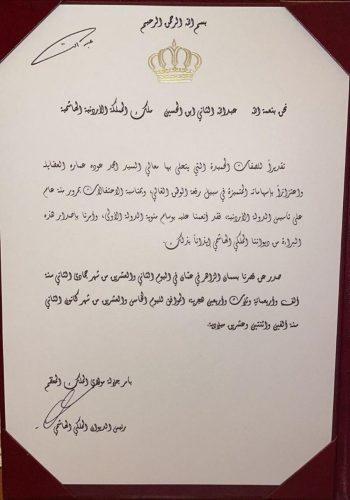 بسم الله الرحمن الرحيم
نحن بنعمة الله عبدالله الثاني ابن الحسين ملك المملكة الاردنية الهاشمية
تقديراً للصفات الحميدة التي يتحلى بها معالي السيد احمد عوده عماره العقايله
واعتزازاً بإسهاماته المتميزة في سبيل رفعة الوطن الغالي، وبمناسبة الاحتفالات بمرور مئة عام
على تأسيس الدولة الاردنية، فقد انعمنا عليه بوسام مئوية الدولة الاولى، وأمرنا بإصدار هذه
البراءة من ديواننا الملكي الهاشمي إيذاناً بذلك.
صدر عن قصرنا بسمان الزاهر في عمّان في اليوم الثاني والعشرين من شهر جمادى الثاني سنة
الف واربعمائة وثلاث واربعين هجرية، الموافق لليوم الخامس والعشرين من شهر كانون الثاني
سنة الفين واثنتين وعشرين ميلادية.
بأمر جلالة مولاي الملك المعظم
رئيس الديوان الملكي الهاشمي